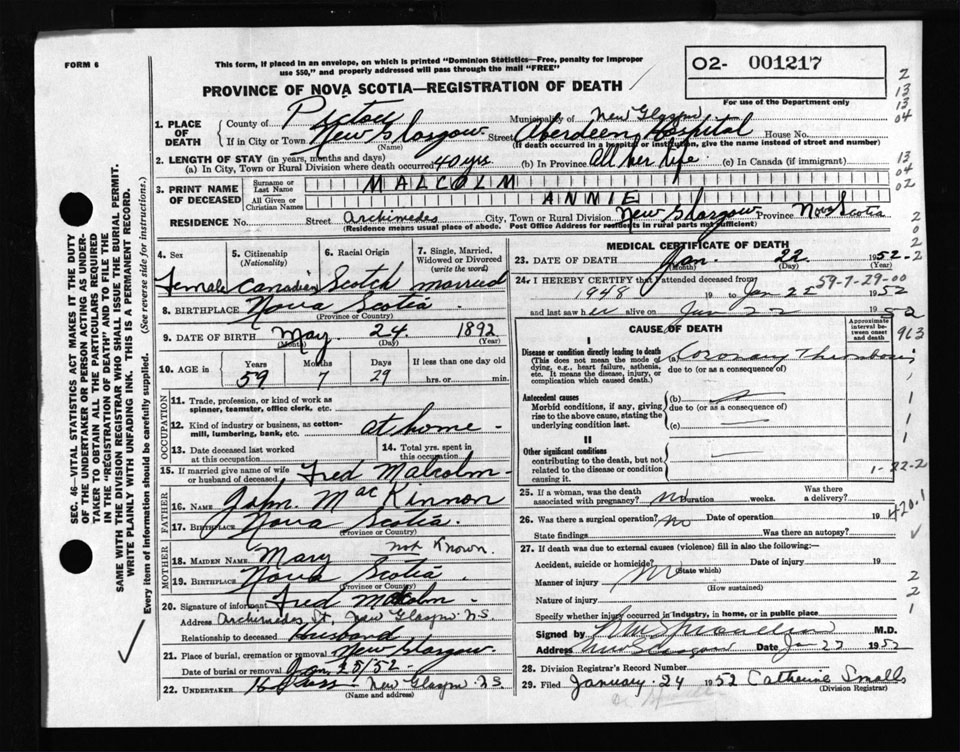 FORM 6
This form, if placed in an envelope, on which is printed "Dominion Statistics—Free, penalty for improper
use $50," and properly addressed will pass through the mail "FREE"
O2- 001217
For use of the Department only
PROVINCE OF NOVA SCOTIA—REGISTRATION OF DEATH
1. PLACE OF DEATH
County of Pictou Municipality of New Glasgow
If in City or Town New Glasgow Street Aberdeen Hospital House No.
(Name) (If death occurred in a hospital or institution, give the name instead of street and number)
2. LENGTH OF STAY (in years, months and days)
(a) In City, Town or Rural Division where death occurred 40 yrs (b) In Province All her life. (c) In Canada (if immigrant)
3. PRINT NAME OF DECEASED
Surname or Last Name MALCOLM
All Given or Christian Names ANNIE
RESIDENCE No. Street Archimedes City, Town or Rural Division New Glasgow Province Nova Scotia
(Residence means usual place of abode. Post Office Address for residents in rural parts not sufficient)
4. Sex
Female
5. Citizenship (Nationality)
Canadian
6. Racial Origin
Scotch
7. Single, Married, Widowed or Divorced (write the word)
married
8. BIRTHPLACE Nova Scotia
(Province or Country)
9. DATE OF BIRTH May 24 1892
(Month) (Day) (Year)
10. AGE in Years Months Days If less than one day old
59 7 29 hrs. or min.
OCCUPATION
11. Trade, profession, or kind of work as
spinner, teamster, office clerk, etc.
12. Kind of industry or business, as cotton-
mill, lumbering, bank, etc. at home -
13. Date deceased last worked
at this occupation
14. Total yrs. spent in
this occupation
15. If married give name of wife
or husband of deceased Fred Malcolm -
FATHER
16. NAME John MacKinnon
17. BIRTHPLACE Nova Scotia.
(Province or Country)
MOTHER
18. MAIDEN NAME Mary not Known.
19. BIRTHPLACE Nova Scotia
(Province or Country)
20. Signature of informant Fred Malcolm
Address Archimedes St, New Glasgow N.S.
Relationship to deceased Husband
21. Place of burial, cremation or removal New Glasgow
Date of burial or removal Jan 25/52
22. UNDERTAKER New Glasgow N.S.
(Name and address)
MEDICAL CERTIFICATE OF DEATH
23. DATE OF DEATH Jan. 22 1952
(Month) (Day) (Year)
24. I HEREBY CERTIFY that I attended deceased from 59-7-29-00
1948 19 to Jan 22 1952
and last saw her alive on Jan 22 1952
CAUSE OF DEATH
Approximate interval between onset and death
I
Disease or condition directly leading to death
(This does not mean the mode of
dying, e.g., heart failure, asthenia,
etc. It means the disease, injury, or
complication which caused death.)
(a) Coronary Thrombosis
due to (or as a consequence of)
Antecedent causes
Morbid conditions, if any, giving
rise to the above cause, stating the
underlying condition last.
(b)
due to (or as a consequence of)
(c)
II
Other significant conditions
contributing to the death, but not
related to the disease or condition
causing it.
1-22-2
25. If a woman, was the death
associated with pregnancy? no Duration weeks. Was there a delivery?
26. Was there a surgical operation? no Date of operation 19
State findings Was there an autopsy?
27. If death was due to external causes (violence) fill in also the following:—
Accident, suicide or homicide? no Date of injury 19
(State which)
Manner of injury
(How sustained)
Nature of injury
Specify whether injury occurred in industry, in home, or in public place
Signed by M.D.
Address New Glasgow Date Jan 1952
28. Division Registrar's Record Number
29. Filed January 24 1952 Catherine Smalls
(Division Registrar)
963
420.1
SEC. 46—VITAL STATISTICS ACT MAKES IT THE DUTY
OF THE UNDERTAKER OR PERSON ACTING AS UNDER-
TAKER TO OBTAIN ALL THE PARTICULARS REQUIRED
IN THE "REGISTRATION OF DEATH" AND TO FILE THE
SAME WITH THE DIVISION REGISTRAR WHO SHALL ISSUE THE BURIAL PERMIT.
WRITE PLAINLY WITH UNFADING INK. THIS IS A PERMANENT RECORD.
Every item of information should be carefully supplied. (See reverse side for instructions.)